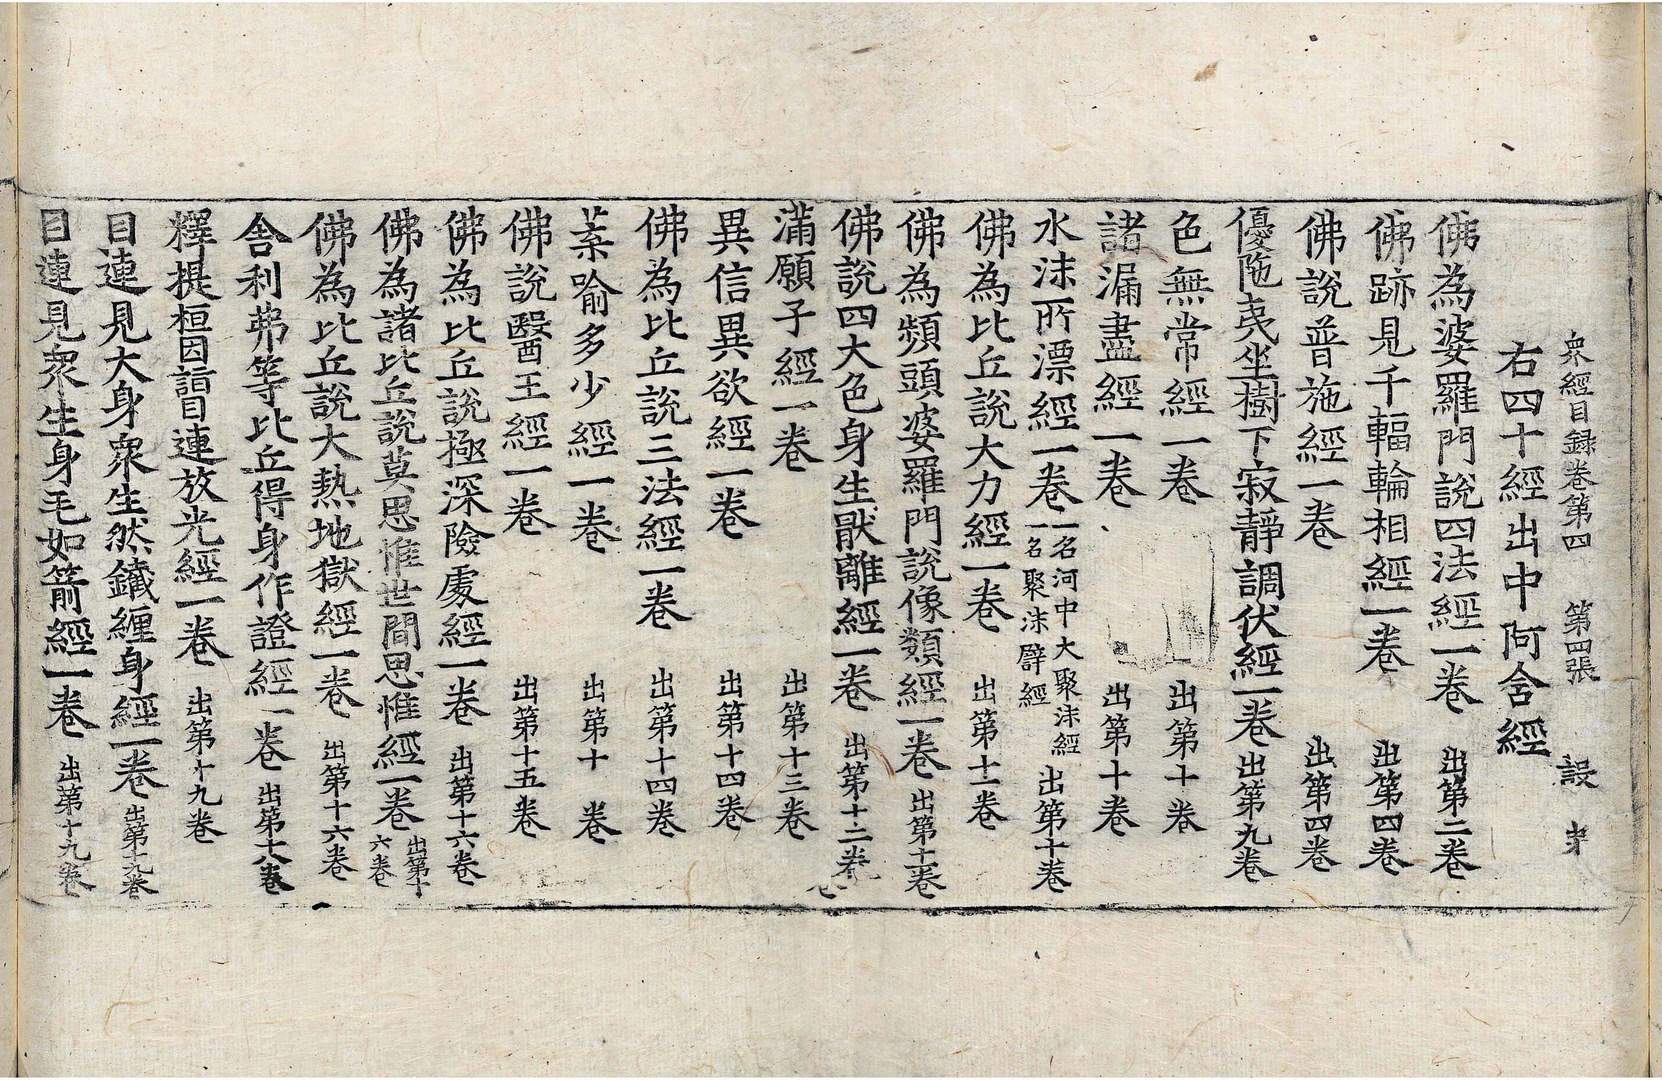 衆經目録卷第四　第四張　設　㝳
右四十經出中阿含經
佛為婆羅門說四法經一卷　出第二卷
佛跡見千輻輪相經一卷　出第四卷
佛說普施經一卷　出第四卷
優陁夷坐樹下寂靜調伏經一卷　出第九卷
色無常經一卷　出第十卷
諸漏盡經一卷　出第十卷
水沫所漂經一卷　一名河中大聚沫經　一名聚沫譬經　出第十卷
佛為比丘說大力經一卷　出第十一卷
佛為頻頭婆羅門說像類經一卷　出第十一卷
佛說四大色身生猒離經一卷　出第十二卷
滿願子經一卷　出第十三卷
異信異欲經一卷　出第十四卷
佛為比丘說三法經一卷　出第十四卷
葇喻多少經一卷　出第十　卷
佛說醫王經一卷　出第十五卷
佛為比丘說極深險處經一卷　出第十六卷
佛為諸比丘說莫思惟世間思惟經一卷　出第十六卷
佛為比丘說大熱地獄經一卷　出第十六卷
舍利弗等比丘得身作證經一卷　出第十八卷
釋提桓因詣目連放光經一卷　出第十九卷
目連見大身衆生然鐵纏身經一卷　出第十九卷
目連見衆生身毛如箭經一卷　出第十九卷